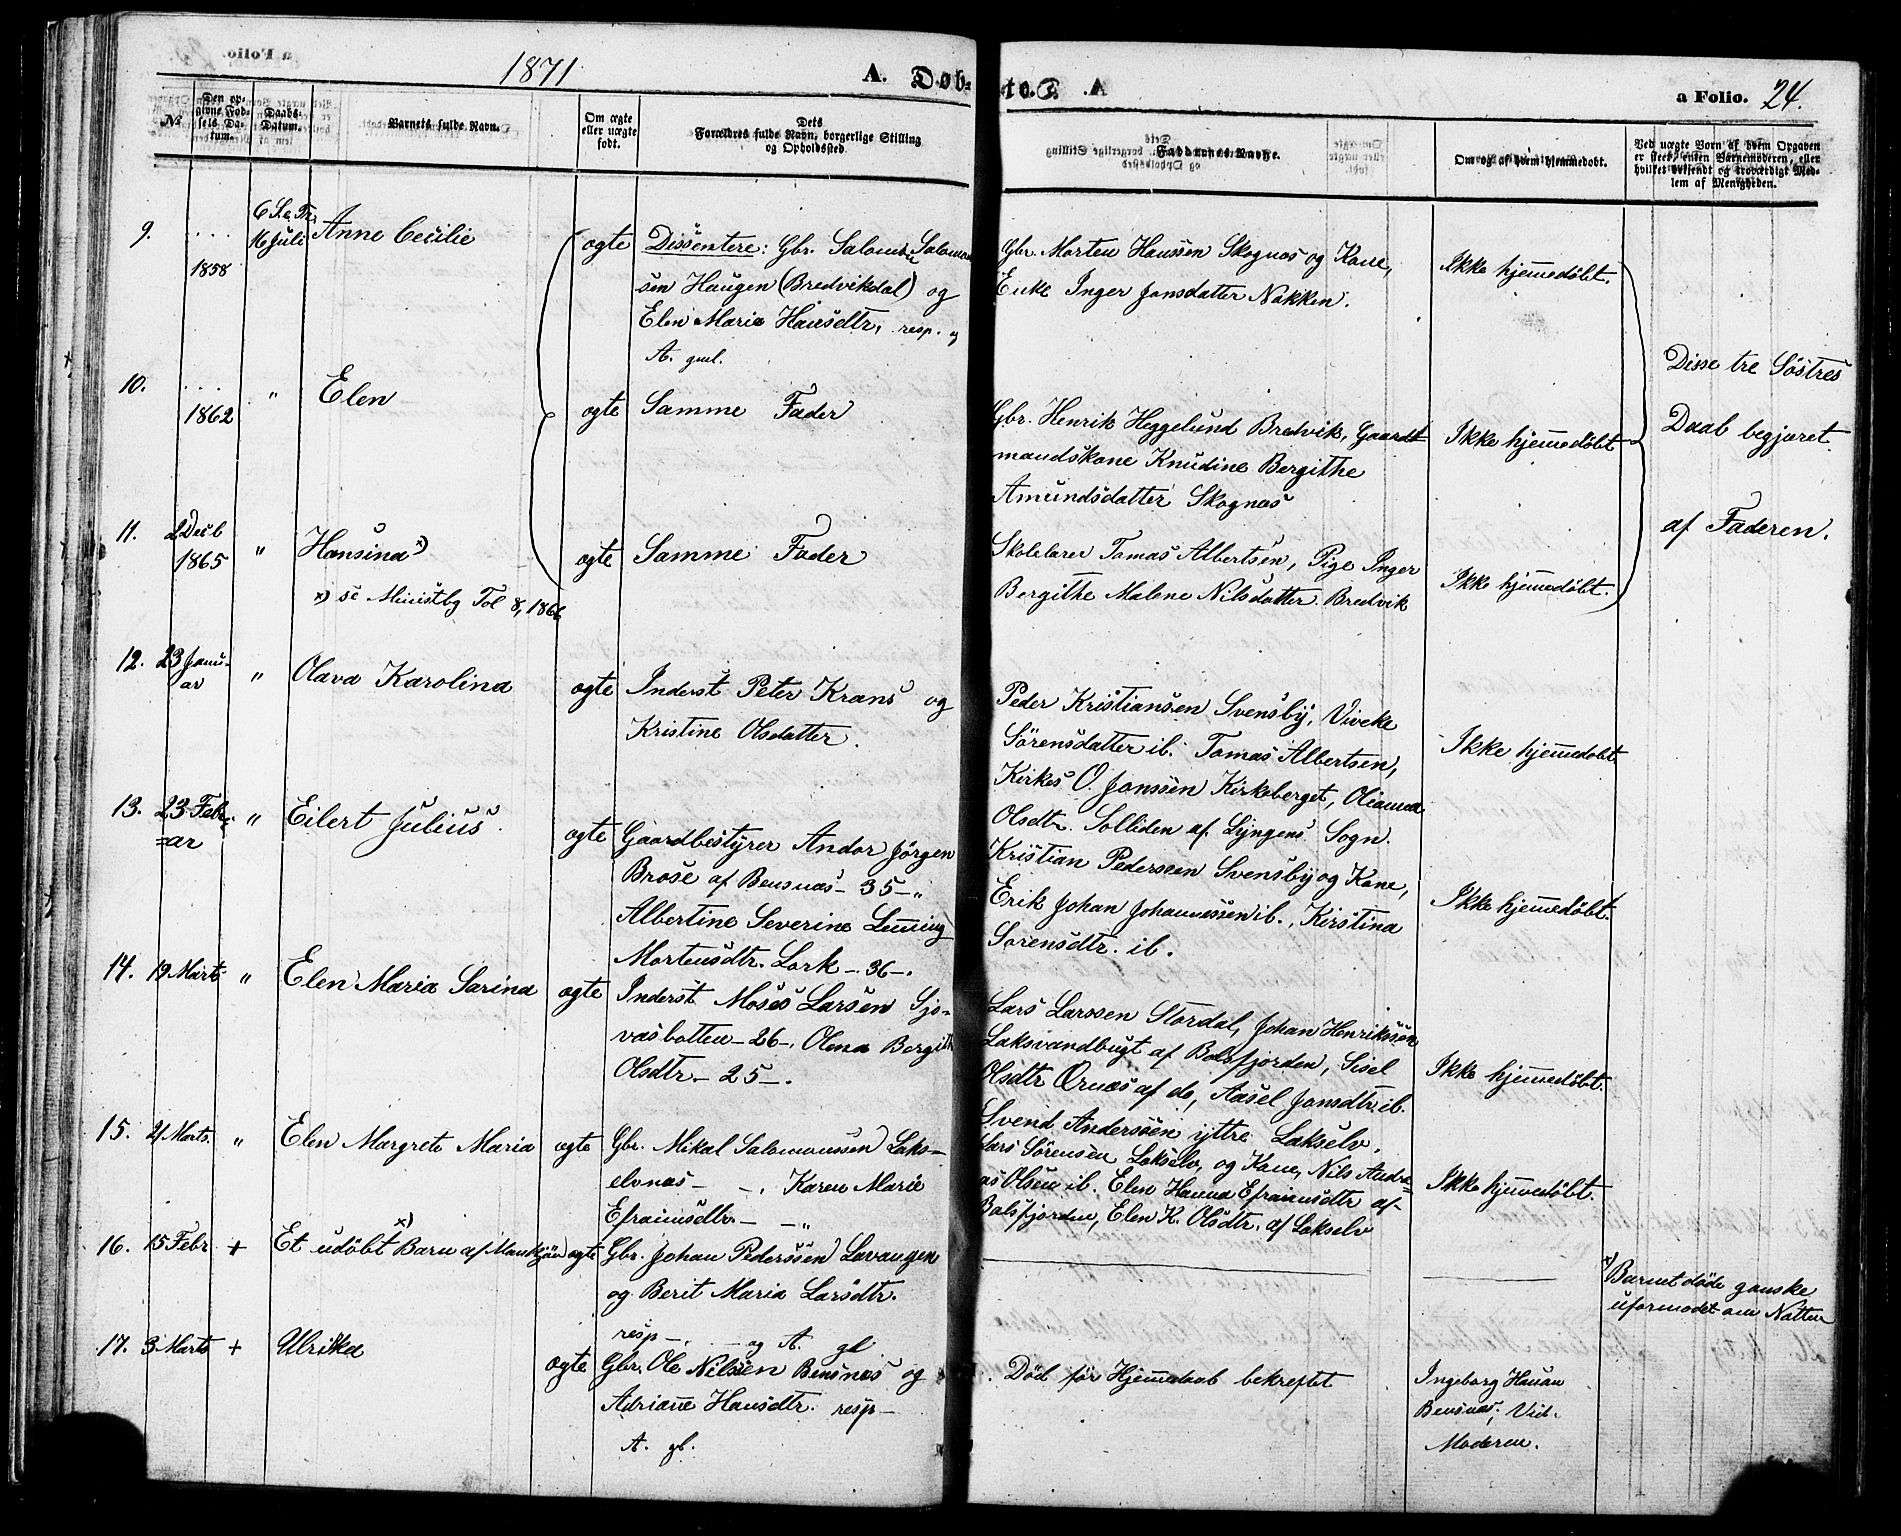 1871
A. Døb-
te. A
a Folio. 24.
№
Den op-
givne Fød-
sels Da-
tum.
Daabs-
Datum.
Barnets fulde Navn.
Om ægte
eller uægte
født.
Dets
Forældres fulde Navn, borgerlige Stilling
og Opholdssted.
Faddernes Navne.
Om og af hvem hjemmedøbt.
Ved uægte Børn af hvem Opgaven
er skeet, enten Barnemoderen, eller
hvilket velkjendt og troværdigt Med-
lem af Menigheden.
9. ... 1858
6 S. e. Tr.
16 Juli
Anne Cecilie
ægte
Dissentere: Gbr. Salomon Salomon
sen Haugen (Bredvikdal) og
Elen Marie Hansdtr. resp. og
A. gml.
Gbr. Morten Hanssen Skognæs og Kone,
Enke Inger Jonsdatter Nakken.
Ikke hjemmedøbt.
Disse tre Søstres
Daab begjæret
af Faderen.
10. ... 1862 " Elen
ægte
Samme Fader
Gbr. Henrik Heggelund Bredvik, Gaard
mandskone Knudine Bergithe
Amundsdatter Skognæs
Ikke hjemmedøbt
11. 2 Decb 1865 " Hansina x)
x) se Ministbg Fol 8, 1866
ægte
Samme Fader
Skolelærer Tomas Albertsen, Pige Inger
Bergithe Malene Nilsdatter Bredvik
Ikke hjemmedøbt.
12. 23 Janu-
ar " Olava Karolina
ægte
Inderst Peter Krans og
Kristine Olsdatter.
Peder Kristiansen Svensby, Viveke
Sørensdatter ib. Tomas Albertsen,
Kirkes. O. Jonssen Kirkeberget, Oleanna
Olsdtr. Solliden af Lyngens Sogn.
Ikke hjemmedøbt.
13. 23 Febru-
ar " Eilert Julius.
ægte
Gaardbestyrer Andor Jørgen
Brose af Bensnæs - 35 - "
Albertine Severine Lenning
Mortensdtr. Lork - 36 -.
Kristian Pederssen Svensby og Kone,
Erik Johan Johannessen ib., Kirstina
Sørensdtr. ib.
Ikke hjemmedøbt.
14. 19 Marts " Elen Maria Sarina
ægte
Inderst Moses Larsen Sjø-
vasbotten - 26 -, Olena Bergith
Olsdtr. - 25 -.
Lars Larssen Stordal, Johan Henrikssen
Laksvandbugt af Balsfjorden, Sisel
Olsdtr Ørnæs af do, Aasel Jonsdtr ib.
Svend Anderssen ytre Lakselv.
Ikke hjemmedøbt.
15. 21 Marts. " Elen Margrete Maria
ægte
Gbr. Mikal Salomonssen Laks-
elvnæs - -. Karen Marie
Efraimsdtr. - - "
Lars Sørensen Lakselv, og Kone, Nils Andre-
as Olsen ib. Elen Hanna Efraimsdtr af
Balsfjorden, Elen K. Olsdtr. af Lakselv
Ikke hjemmedøbt.
16. 15 Febr + Et udøbt x) Barn af Mankjøn
ægte
Gbr. Johan Pederssen Lavangen
og Berit Maria Larsdtr.
resp -. - og A. gl
x) Barnet døde ganske
uformodet om Natten
17. 3 Marts + Ulrikka
ægte
Gbr. Ole Nilsen Bensnæs og
Adriane Hansdtr. resp -
A. gl.
Død før Hjemmedaab bekreftet
Ingeborg Hanan
Bensnæs, Vid.
Moderen.